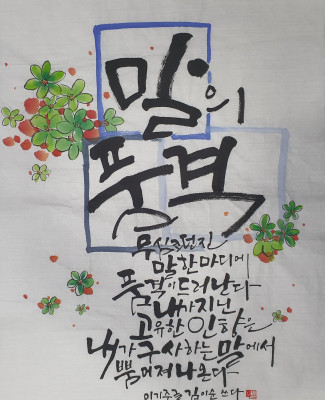 말의
품격
무심코던진
말한마디에
품격이드러난다
내가지닌
고유한인향은
내가구사하는말에서
뿜어져나온다
이기주글 김이순 쓰다